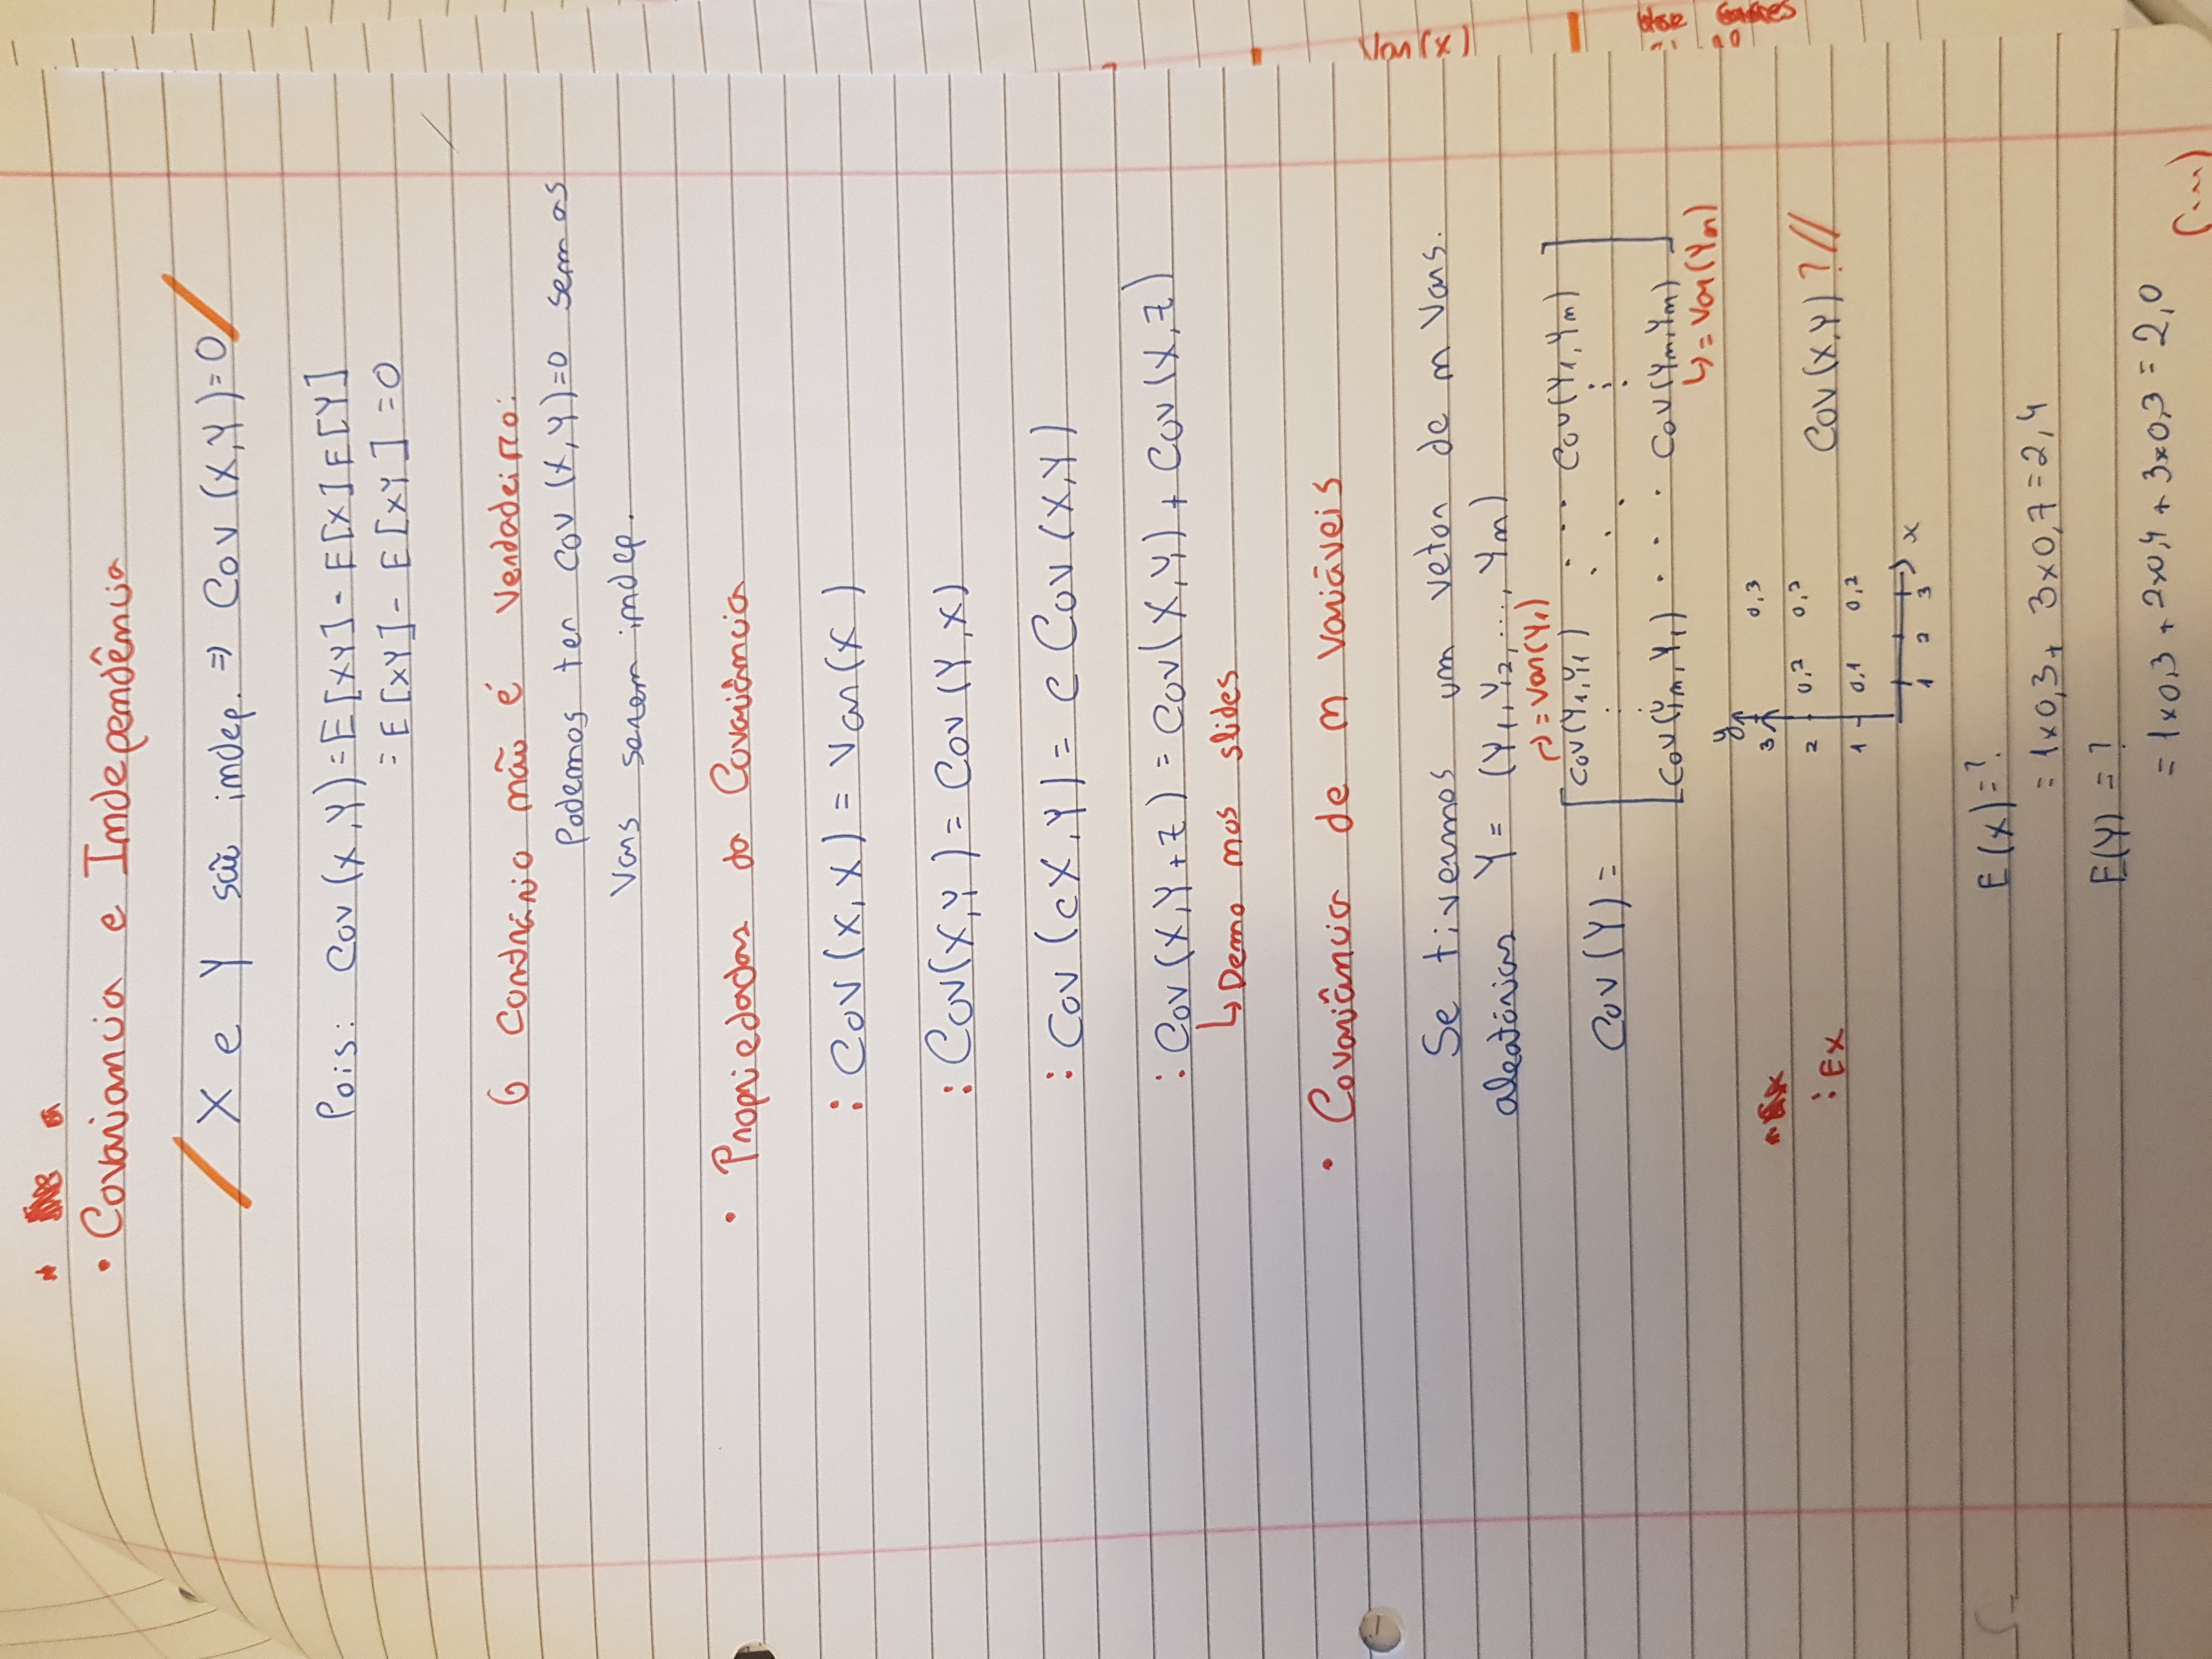 • Covariancia e Independência
/ X e Y são indep. => Cov (X,Y)=0 /
Pois: Cov (X,Y) = E[XY] - E[X]E[Y]
= E[XY] - E[XY] = 0
O Contrário não é Verdadeiro:
Podemos ter Cov (X,Y)=0 sem as
Vars serem indep.
• Propriedades da Covariância
: Cov (X,X) = Var(X)
: Cov(X,Y) = Cov (Y,X)
: Cov (cX,Y) = c Cov (X,Y)
: Cov (X,Y+Z) = Cov(X,Y) + Cov (X,Z)
↳ Demo nos slides
• Covariância de n Variáveis
Se tivermos um vetor de n Vars.
aleatórias Y = (Y1,Y2,...,Yn)
↱ = Var(Y1)
Cov(Y1,Y1) ... Cov(Y1,Yn)
Cov (Y) =
Cov(Yn,Y1) ... Cov(Yn,Yn)
↳ = Var(Yn)
y
3 0,3
2 0,2 0,2
: Ex Cov (X,Y) ? //
1 0,1 0,2
1 2 3 x
E(X) = ?
= 1x0,3 + 3x0,7 = 2,4
E(Y) = ?
= 1x0,3 + 2x0,4 + 3x0,3 = 2,0
(...)
Var(x)